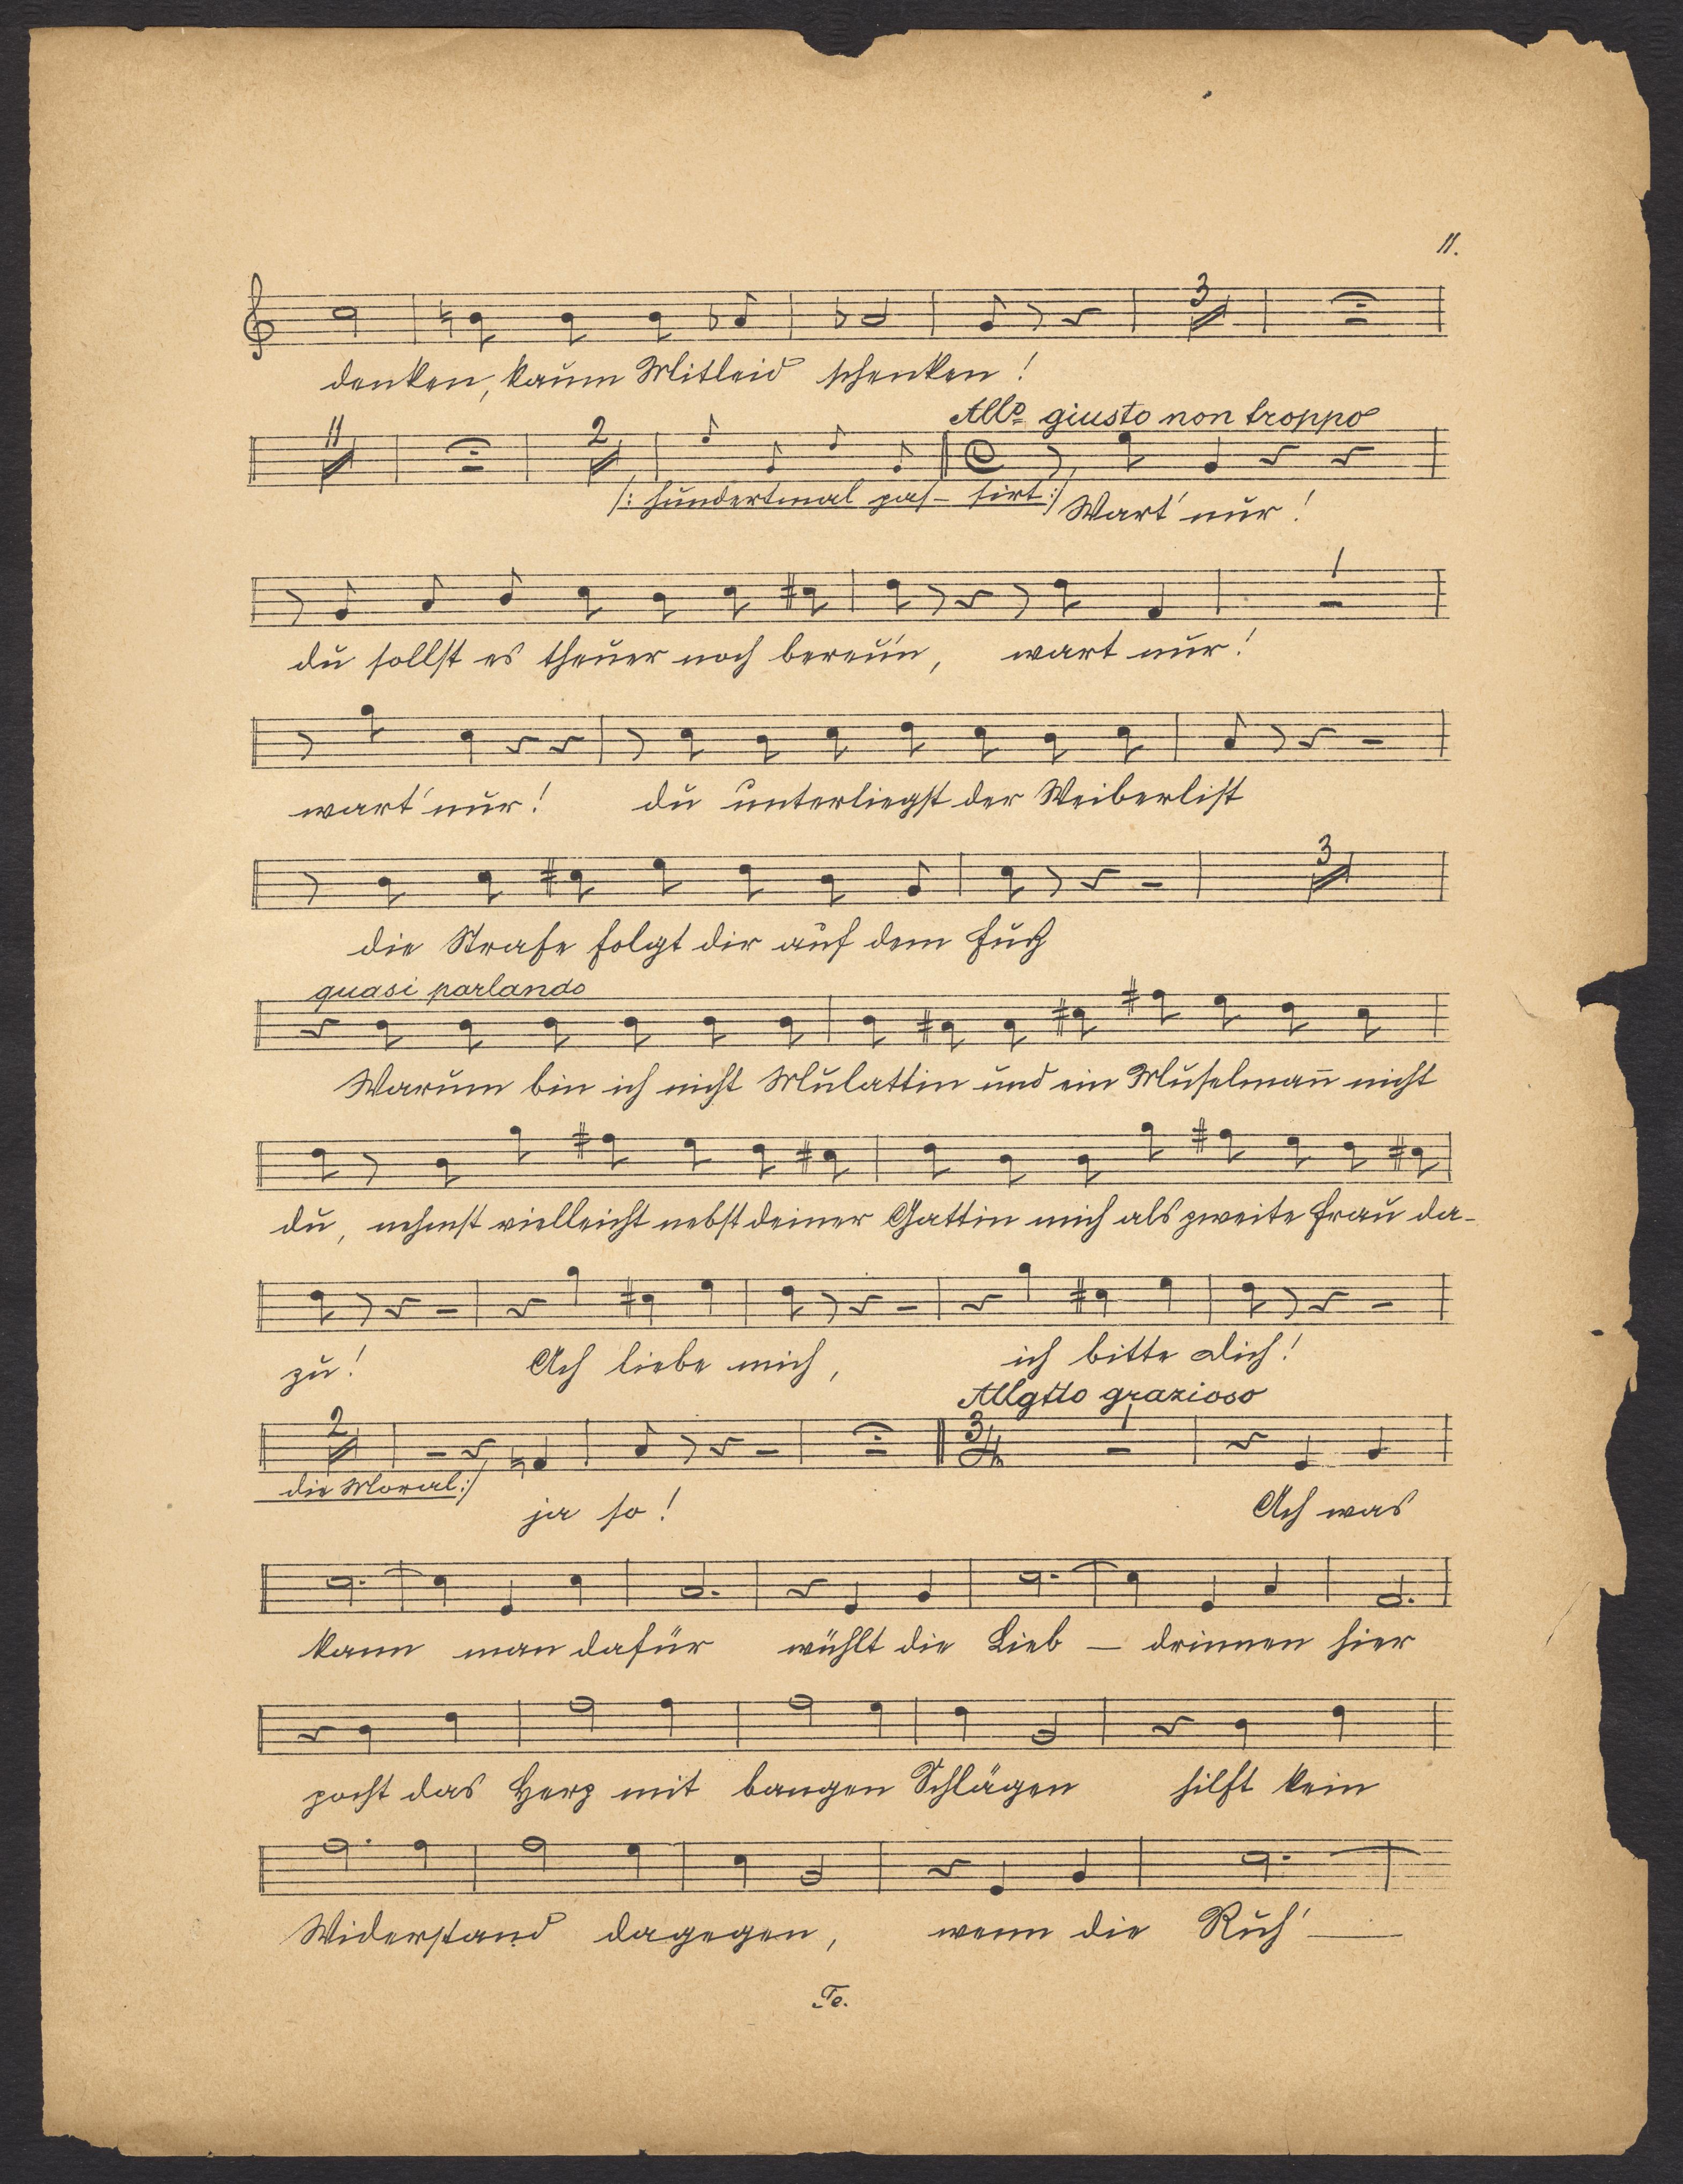 11.
denken, kaum Mitleid schenken!
3
Allo giusto non troppo
11 2
/: hundertmal pas- sirt :/ Wart' nur!
1
du sollst es theuer noch bereu'n, wart nur!
wart' nur! du unterliegst der Weiberlist
3
die Strafe folgt dir auf dem Fuß
quasi parlando
Warum bin ich nicht Mulattin und ein Muselmañ nicht
du, nehmst vielleicht nebst deiner Gattin mich als zweite Frau da-
zu! Ach liebe mich, ich bitte dich!
Allgtto grazioso
2 3/4 1
die Moral :/ ja so! Ach was
kann man dafür wühlt die Lieb — drinnen hier
pocht das Herz mit bangen Schlägen hilft kein
Widerstand dagegen, wenn die Ruh' —
Te.